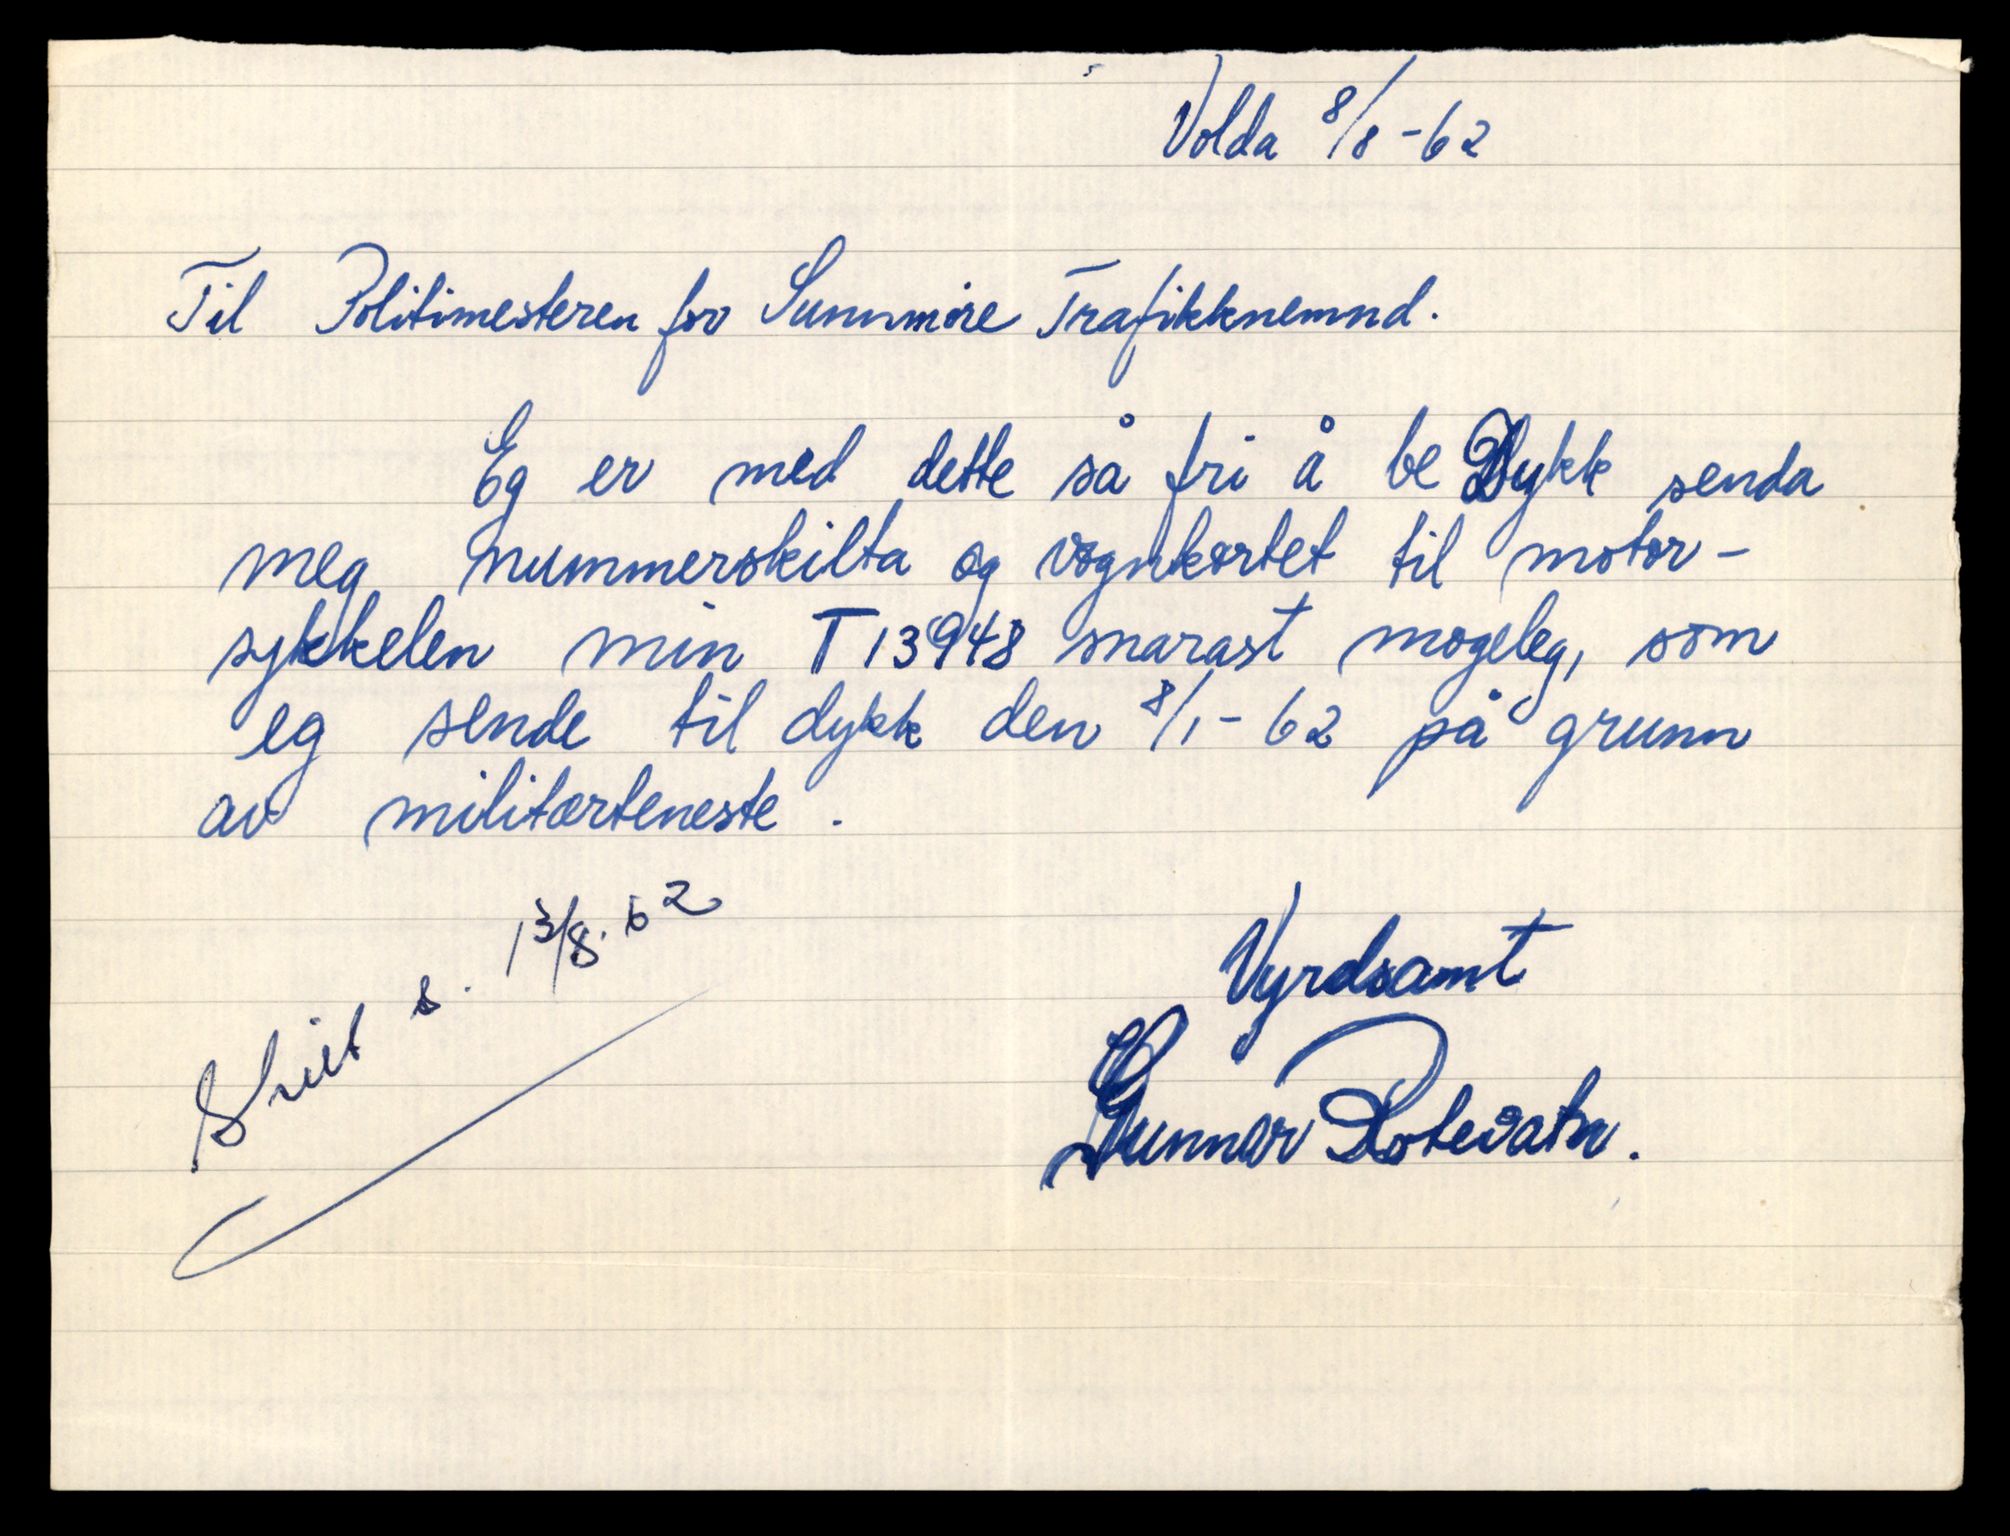 Volda 8/8-62
Til Politimesteren for Sunnmøre Trafikknemnd.
Eg er med dette så fri å be Dykk senda
meg nummerskilta og vognkortet til motor-
sykkelen min T 13948 snarast mogeleg, som
eg sende til dykk den 8/1-62 på grunn
av militærteneste.
s. 13/8.62
Vyrdsamt
Gunnar Rotevatn.